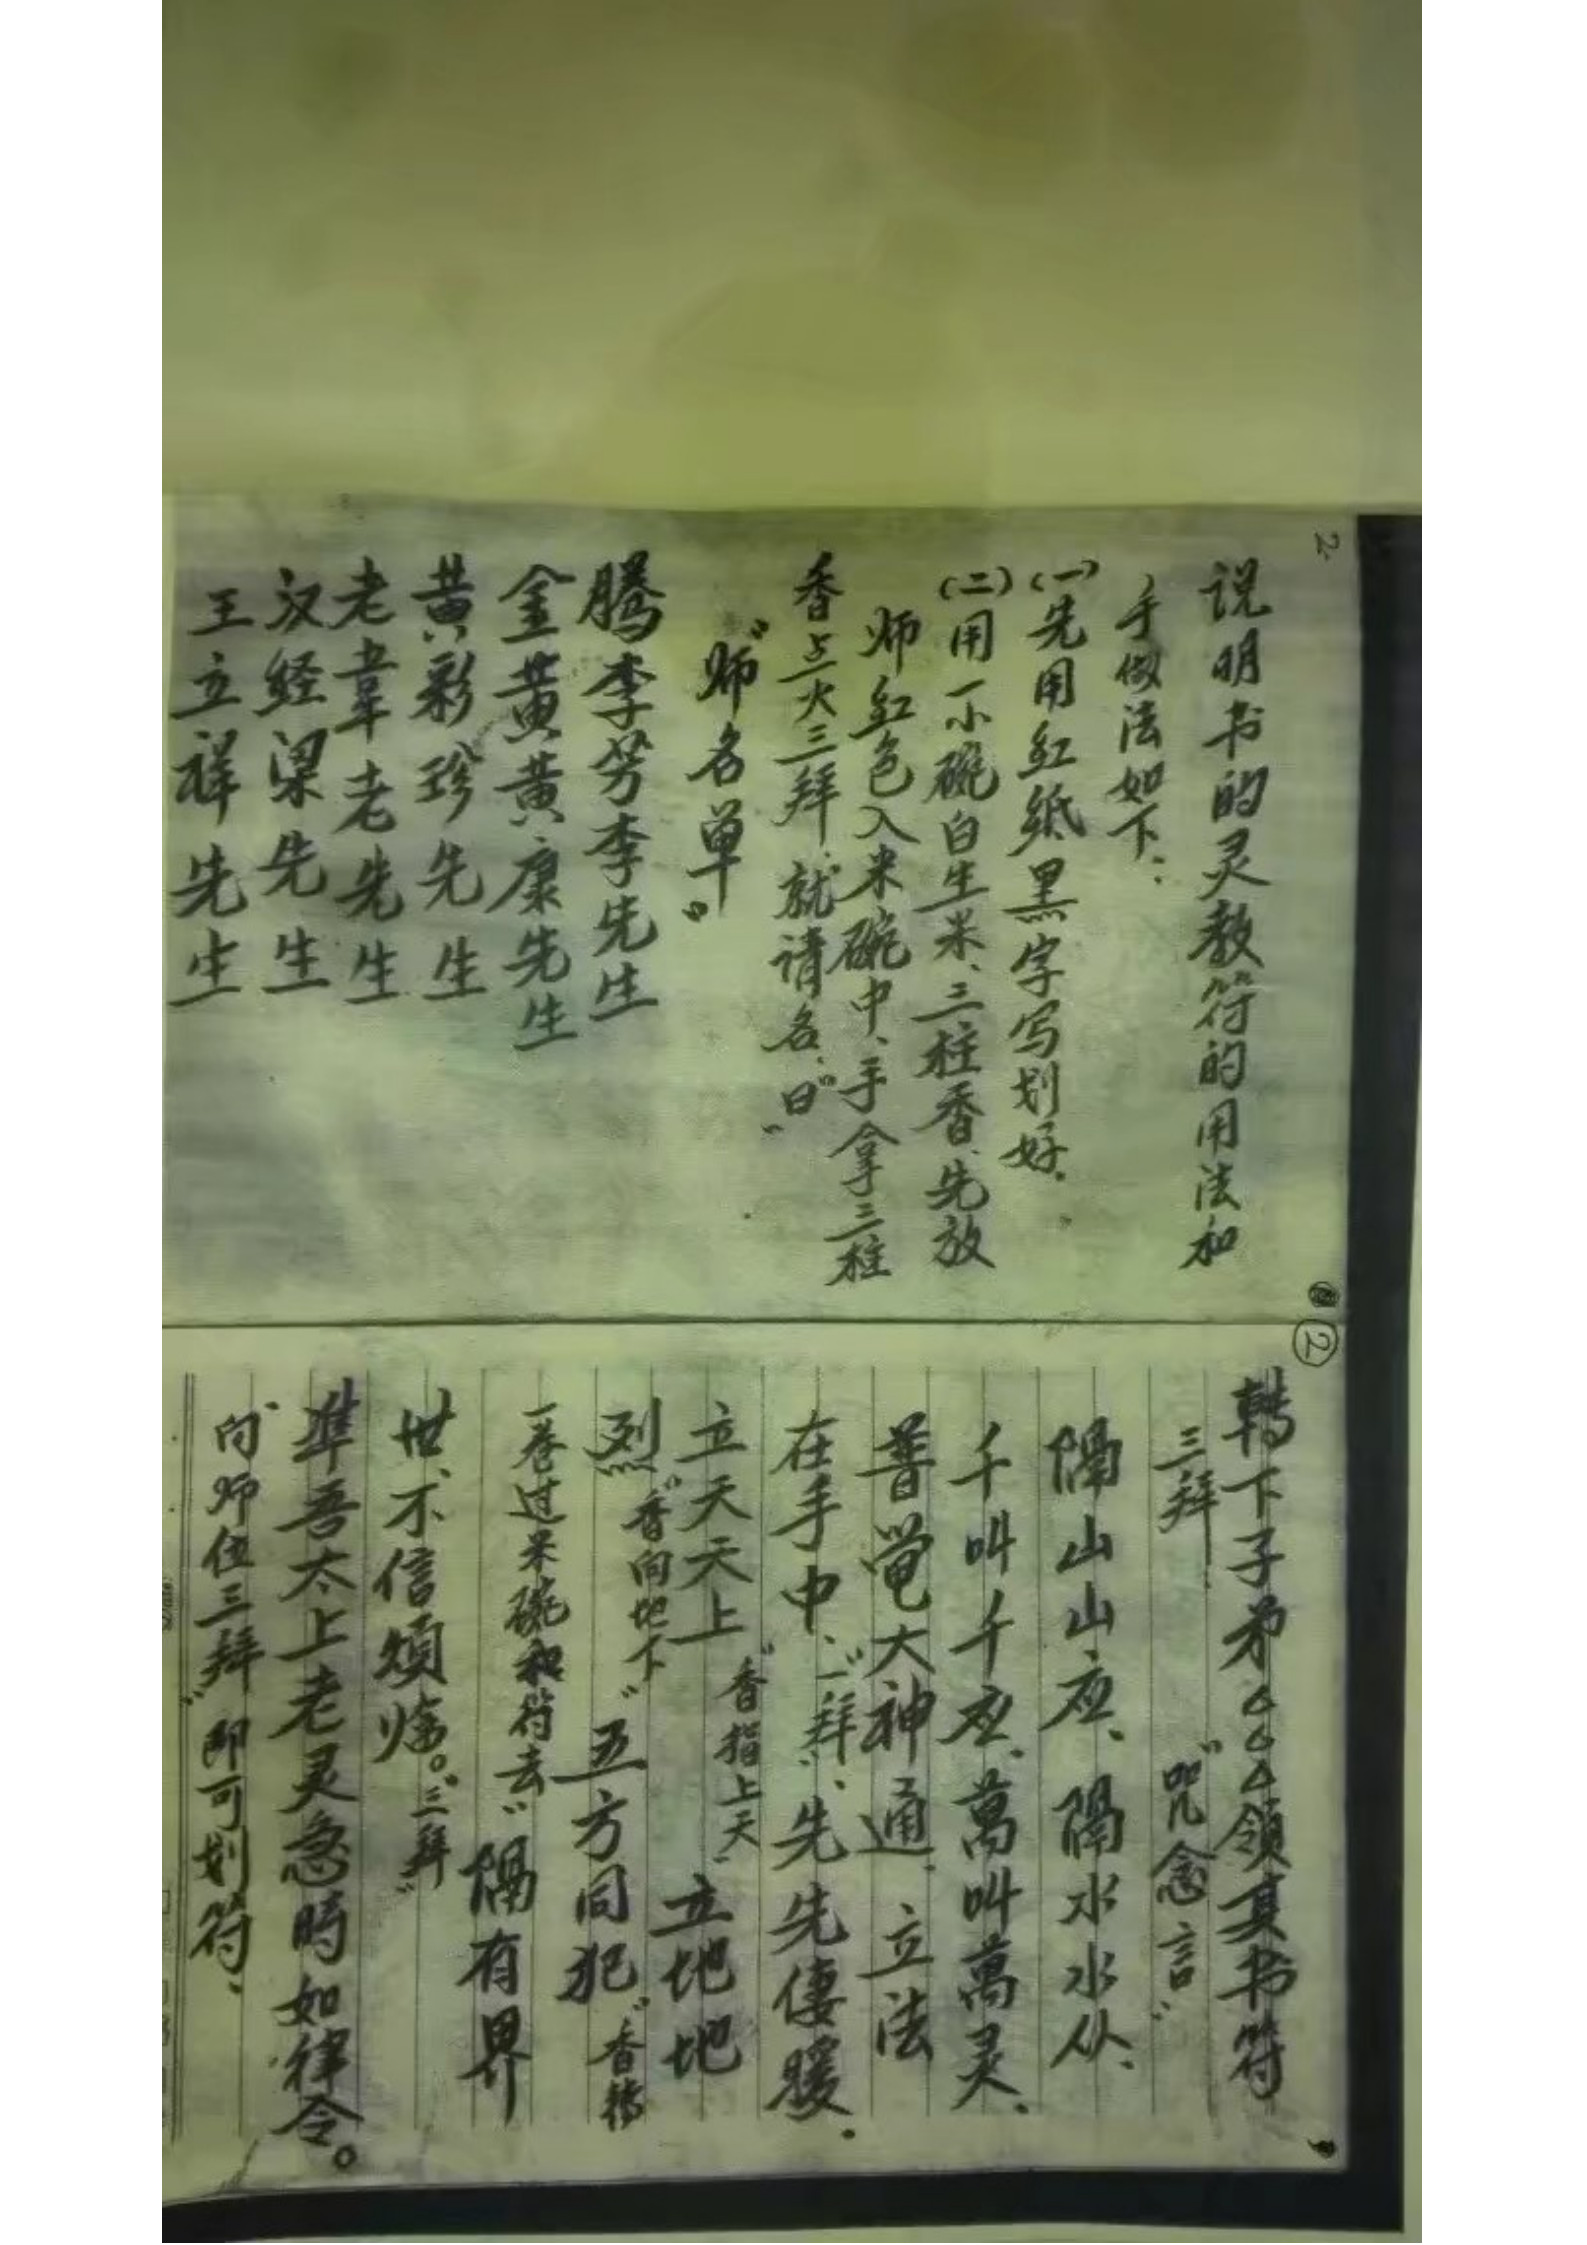 2
说明书的灵教符的用法和
手做法如下：
(一)先用红纸黑字写划好.
(二)用一小碗白生米、三柱香、先放
师红包入米碗中、手拿三柱
香点火三拜、就请名、"曰"
"师名单"
腾李芳李先生
金黄黄康先生
黄彩珍先生
老韋老先生
汉经梁先生
王立祥先生
2
轉下子弟△△△領真书符
三拜. "咒念言"
隔山山应、隔水水从、
千叫千应、萬叫萬灵.
普大神通、立法
在手中、"一拜"、先先
立天天上 "香指上天" 立地地
烈"香向地下" 五方同犯 "香转
一卷过米碗和符去" 隔有界
世、不信煩。"三拜"
準吾太上老灵急時如律令。
"向师位三拜" 即可划符、